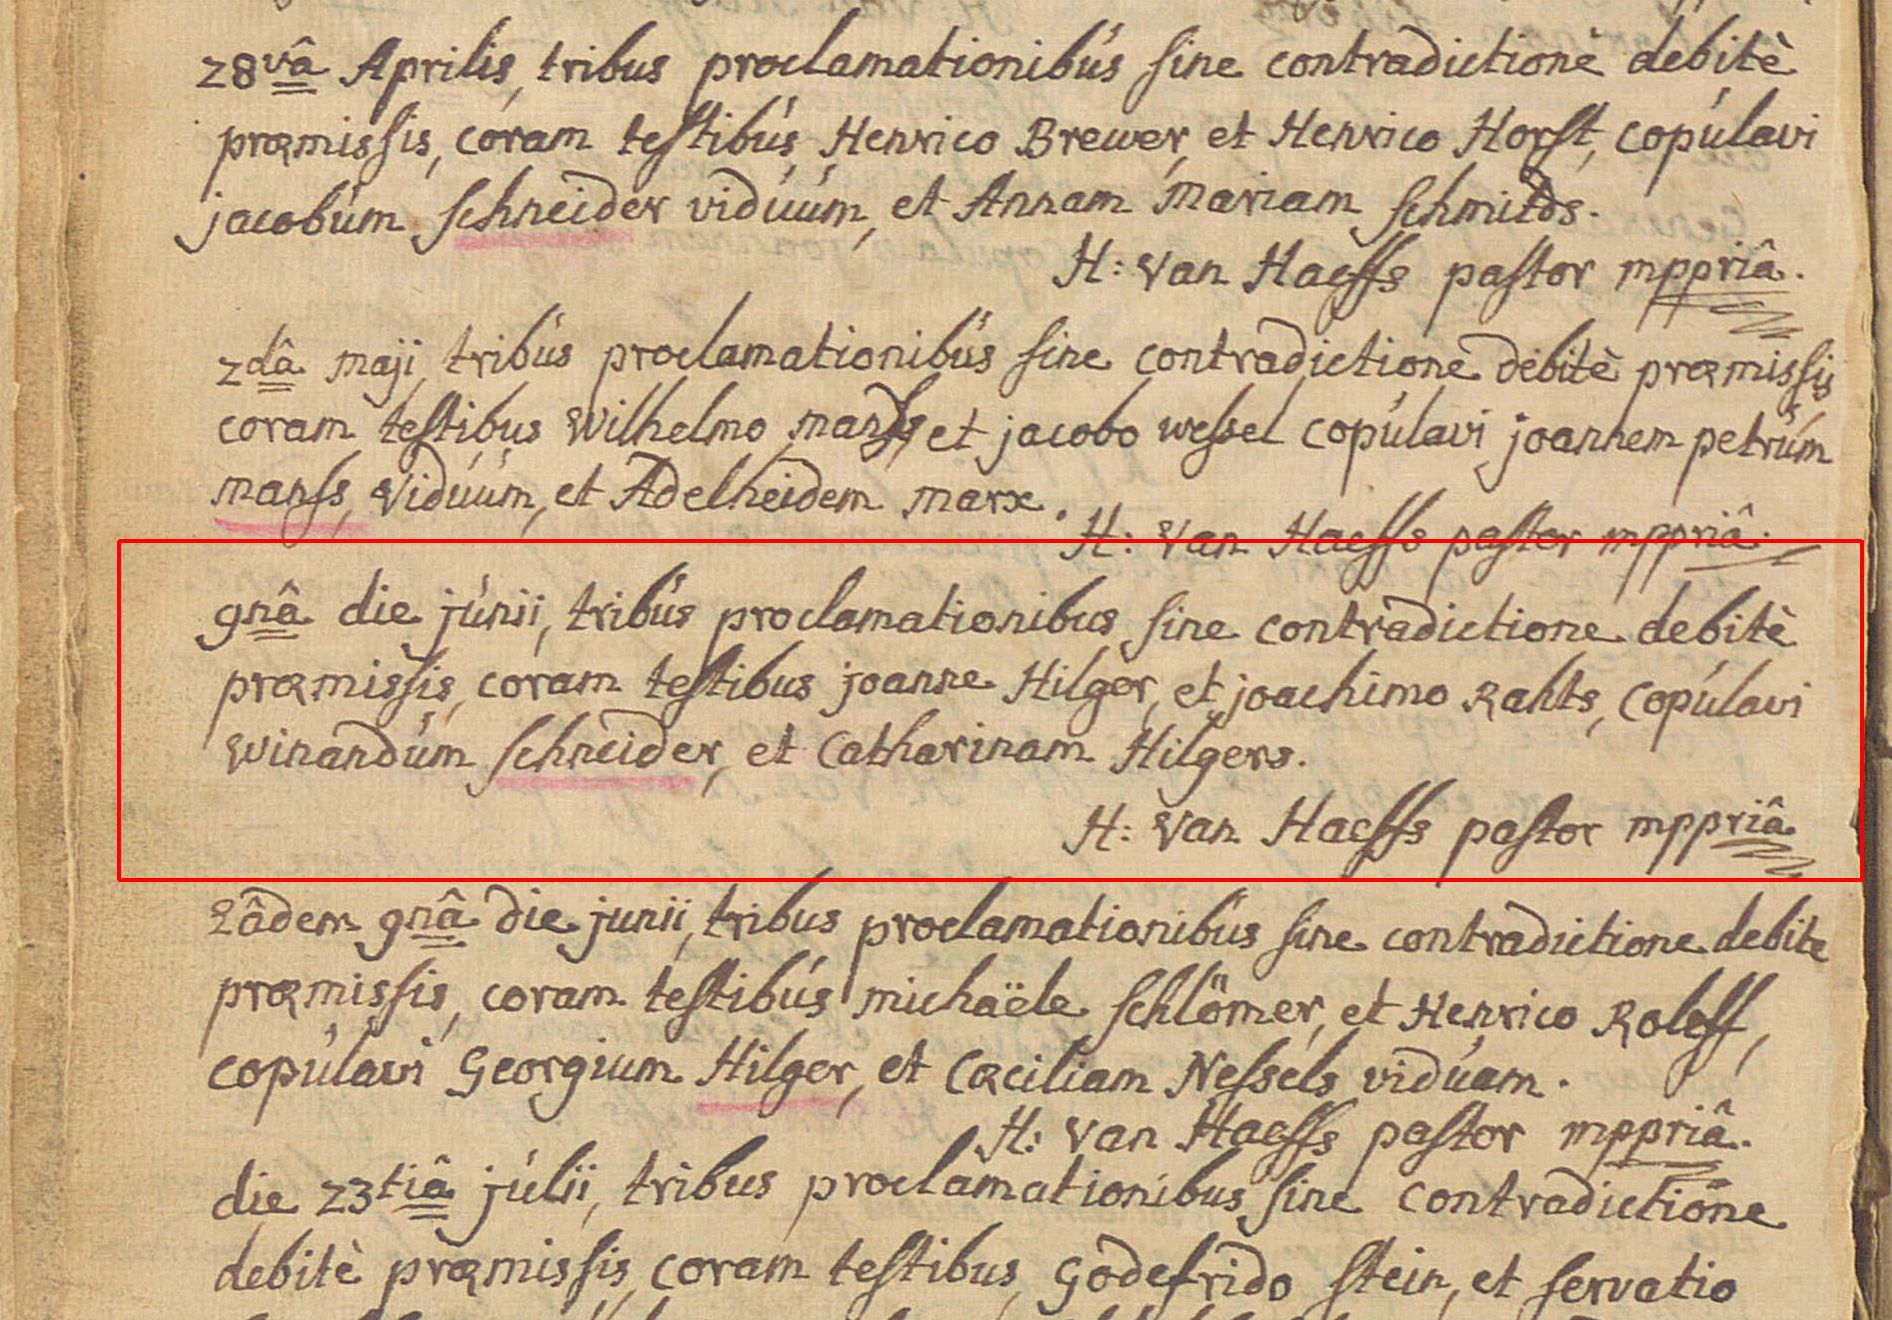 28vâ Aprilis, tribus proclamationibús sine contradictione debitè
præmissis, coram testibús Henrico Brewer, et Henrico Horst, copúlavi
jacobúm schneider vidúúm, et Annam Mariam schmitds.
H: van Haeffs pastor mppriâ.
2dâ maji, tribús proclamationibús sine contradictione debitè præmissis
coram testibus Wilhelmo et jacobo wessel copúlavi joannem petrúm
manss, vidúúm, et Adelheidem marx.
H: van Haeffs pastor mppriâ.
9nâ die júnii, tribús proclamationibus sine contradictione debitè
præmissis, coram testibus joanne Hilger, et joachimo Rahts, copúlavi
winandúm schneider, et Catharinam Hilgers.
H: van Haeffs pastor mppriâ
Eâdem 9nâ die junii, tribus proclamationibús sine contradictione debite
præmissis, coram testibús michaële schlömer, et Henrico Roleff,
copúlavi Georgium Hilger, et Cæciliam Nessels vidúam.
H: van Haeffs pastor mppriâ.
die 23tiâ júlii, tribus proclamationibus sine contradictione
debitè præmissis, coram testibus, Godefrido stein, et servatio